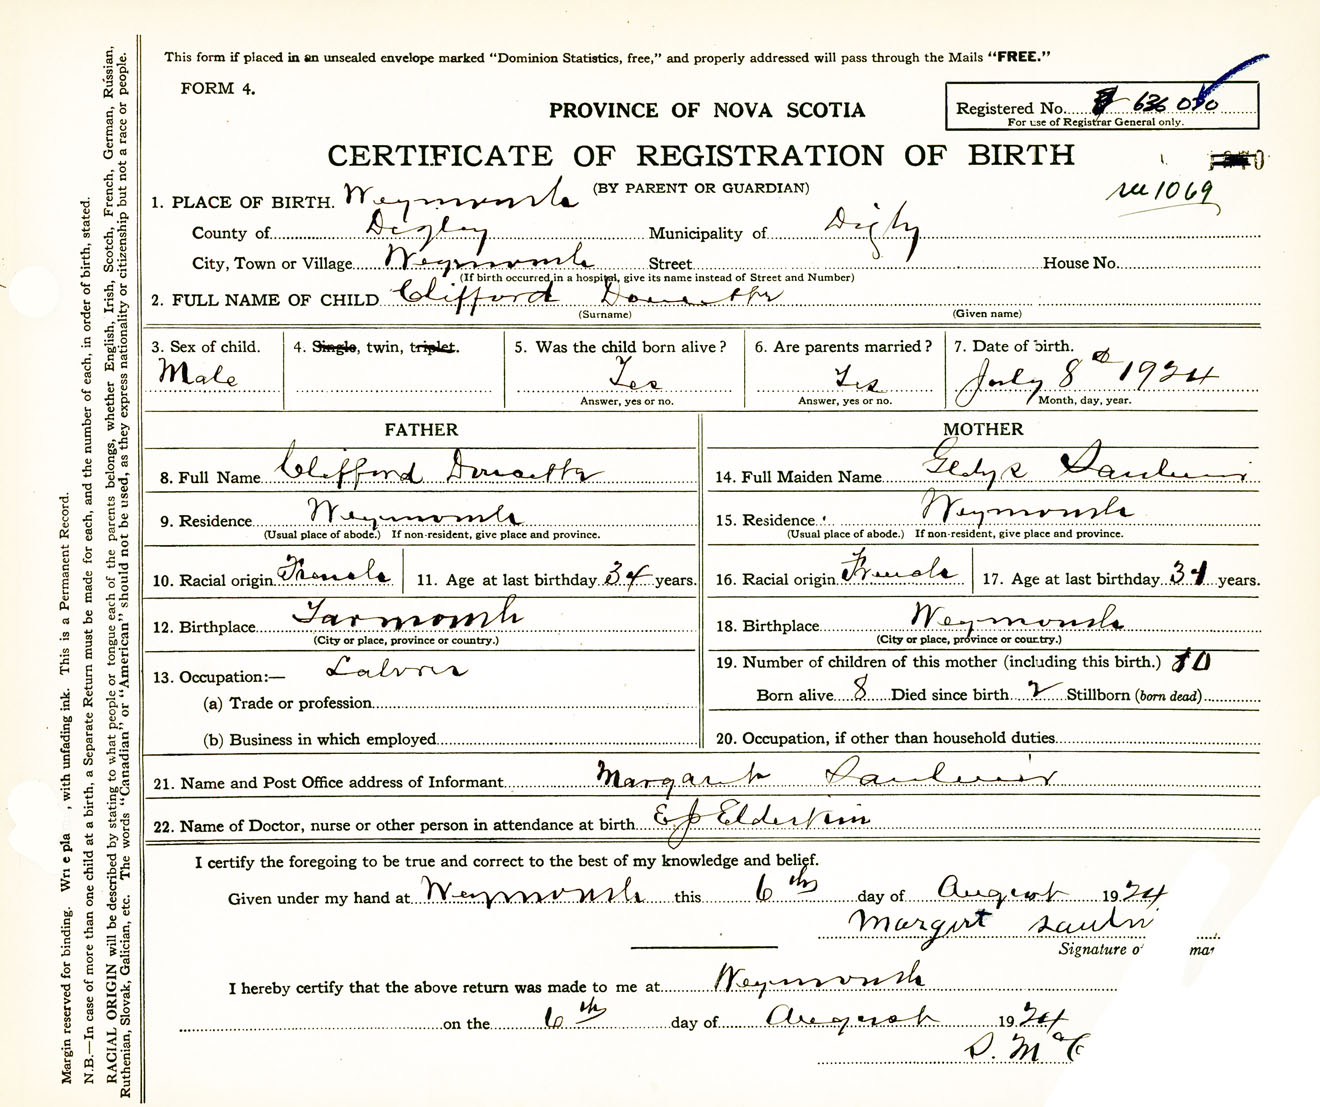 This form if placed in an unsealed envelope marked "Dominion Statistics, free," and properly addressed will pass through the Mails "FREE."
FORM 4.
PROVINCE OF NOVA SCOTIA
Registered No. 636 0
For use of Registrar General only.
CERTIFICATE OF REGISTRATION OF BIRTH
(BY PARENT OR GUARDIAN)
see 1069
1. PLACE OF BIRTH. Weymouth
County of Digby Municipality of Digby
City, Town or Village Weymouth Street House No.
(If birth occurred in a hospital, give its name instead of Street and Number)
2. FULL NAME OF CHILD Clifford Doucette
(Surname) (Given name)
3. Sex of child. 4. Single, twin, triplet. 5. Was the child born alive? 6. Are parents married? 7. Date of birth.
Male Yes Yes July 8th 1924
Answer, yes or no. Answer, yes or no. Month, day, year.
FATHER MOTHER
8. Full Name Clifford Doucette 14. Full Maiden Name Gladys Saulnier
9. Residence Weymouth 15. Residence Weymouth
(Usual place of abode.) If non-resident, give place and province. (Usual place of abode.) If non-resident, give place and province.
10. Racial origin French 11. Age at last birthday 34 years. 16. Racial origin French 17. Age at last birthday 31 years.
12. Birthplace Yarmouth 18. Birthplace Weymouth
(City or place, province or country.) (City or place, province or country.)
13. Occupation:— Laborer 19. Number of children of this mother (including this birth.) 10
(a) Trade or profession Born alive 8 Died since birth 2 Stillborn (born dead)
(b) Business in which employed 20. Occupation, if other than household duties
21. Name and Post Office address of Informant Margaret Saulnier
22. Name of Doctor, nurse or other person in attendance at birth E J Elderkin
I certify the foregoing to be true and correct to the best of my knowledge and belief.
Given under my hand at Weymouth this 6th day of August 1924
Margret Sauln
Signature o mar
I hereby certify that the above return was made to me at Weymouth
on the 6th day of August 1924
S. Mc
Margin reserved for binding. Wri e pla , with unfading ink. This is a Permanent Record.
N.B.—In case of more than one child at a birth, a Separate Return must be made for each, and the number of each, in order of birth, stated.
RACIAL ORIGIN will be described by stating to what people or tongue each of the parents belongs, whether English, Irish, Scotch, French, German, Russian,
Ruthenian, Slovak, Galician, etc. The words "Canadian" or "American" should not be used, as they express nationality or citizenship but not a race or people.